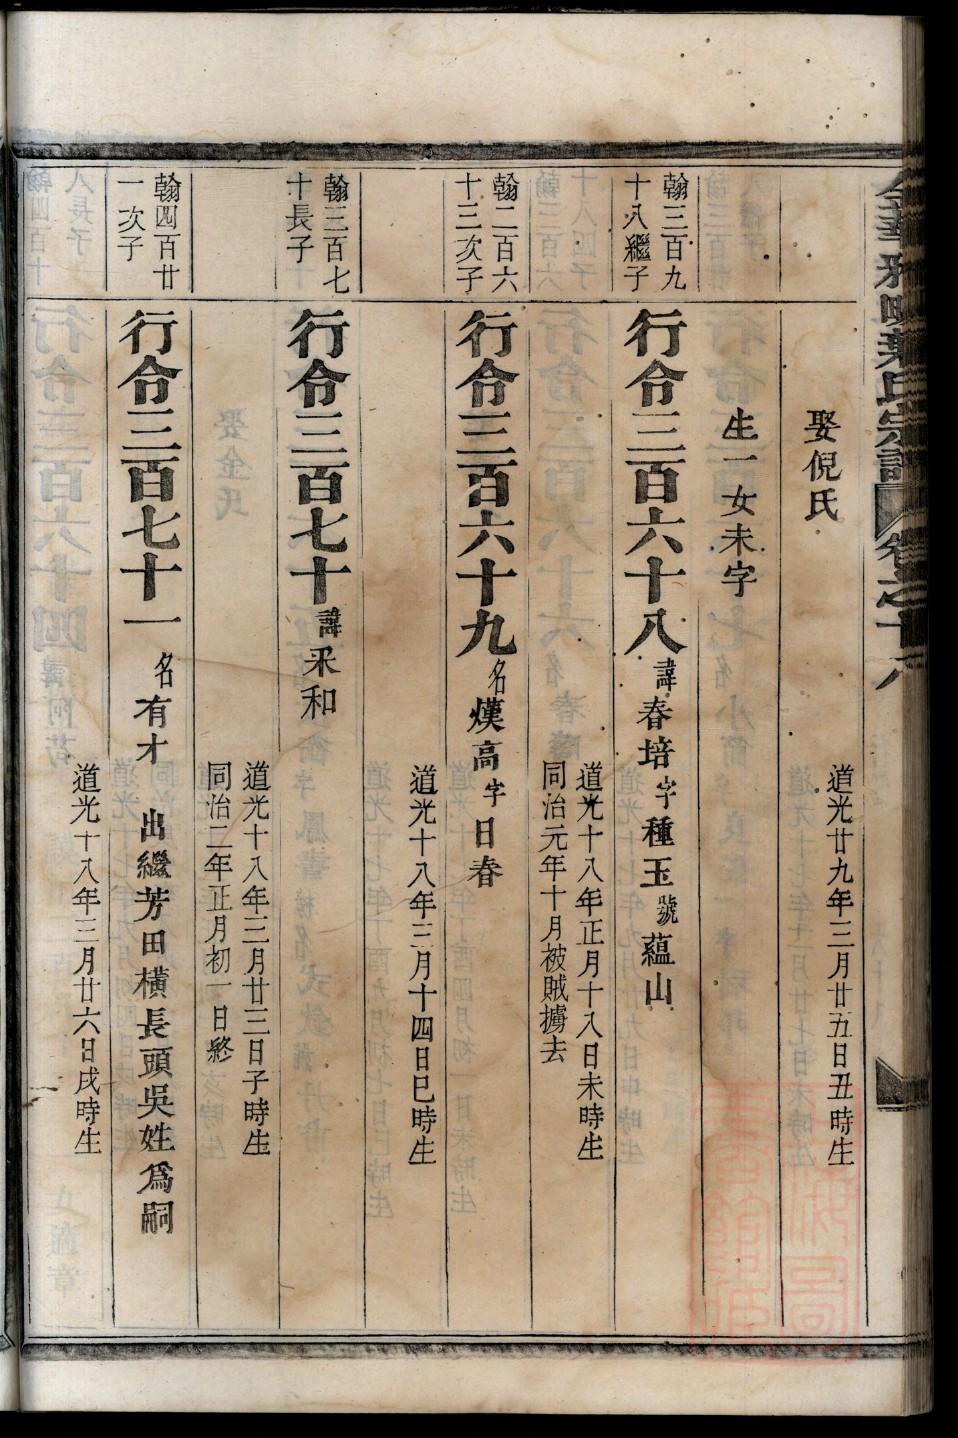 娶倪氏
道光廿九年三月廿五日丑時生
生一女未字
翰三百九
十八繼子
行令三百六十八 諱春培字種玉號蘊山
道光十八年正月十八日未時生
同治元年十月被賊擄去
翰二百六
十三次子
行令三百六十九 名熯高字日春
道光十八年三月十四日巳時生
翰三百七
十長子
行令三百七十 諱釆和
道光十八年三月廿三日子時生
同治二年正月初一日終
翰四百廿
一次子
行令三百七十一 名有才 出繼芳田橫長頭吳姓爲嗣
道光十八年三月廿六日戌時生